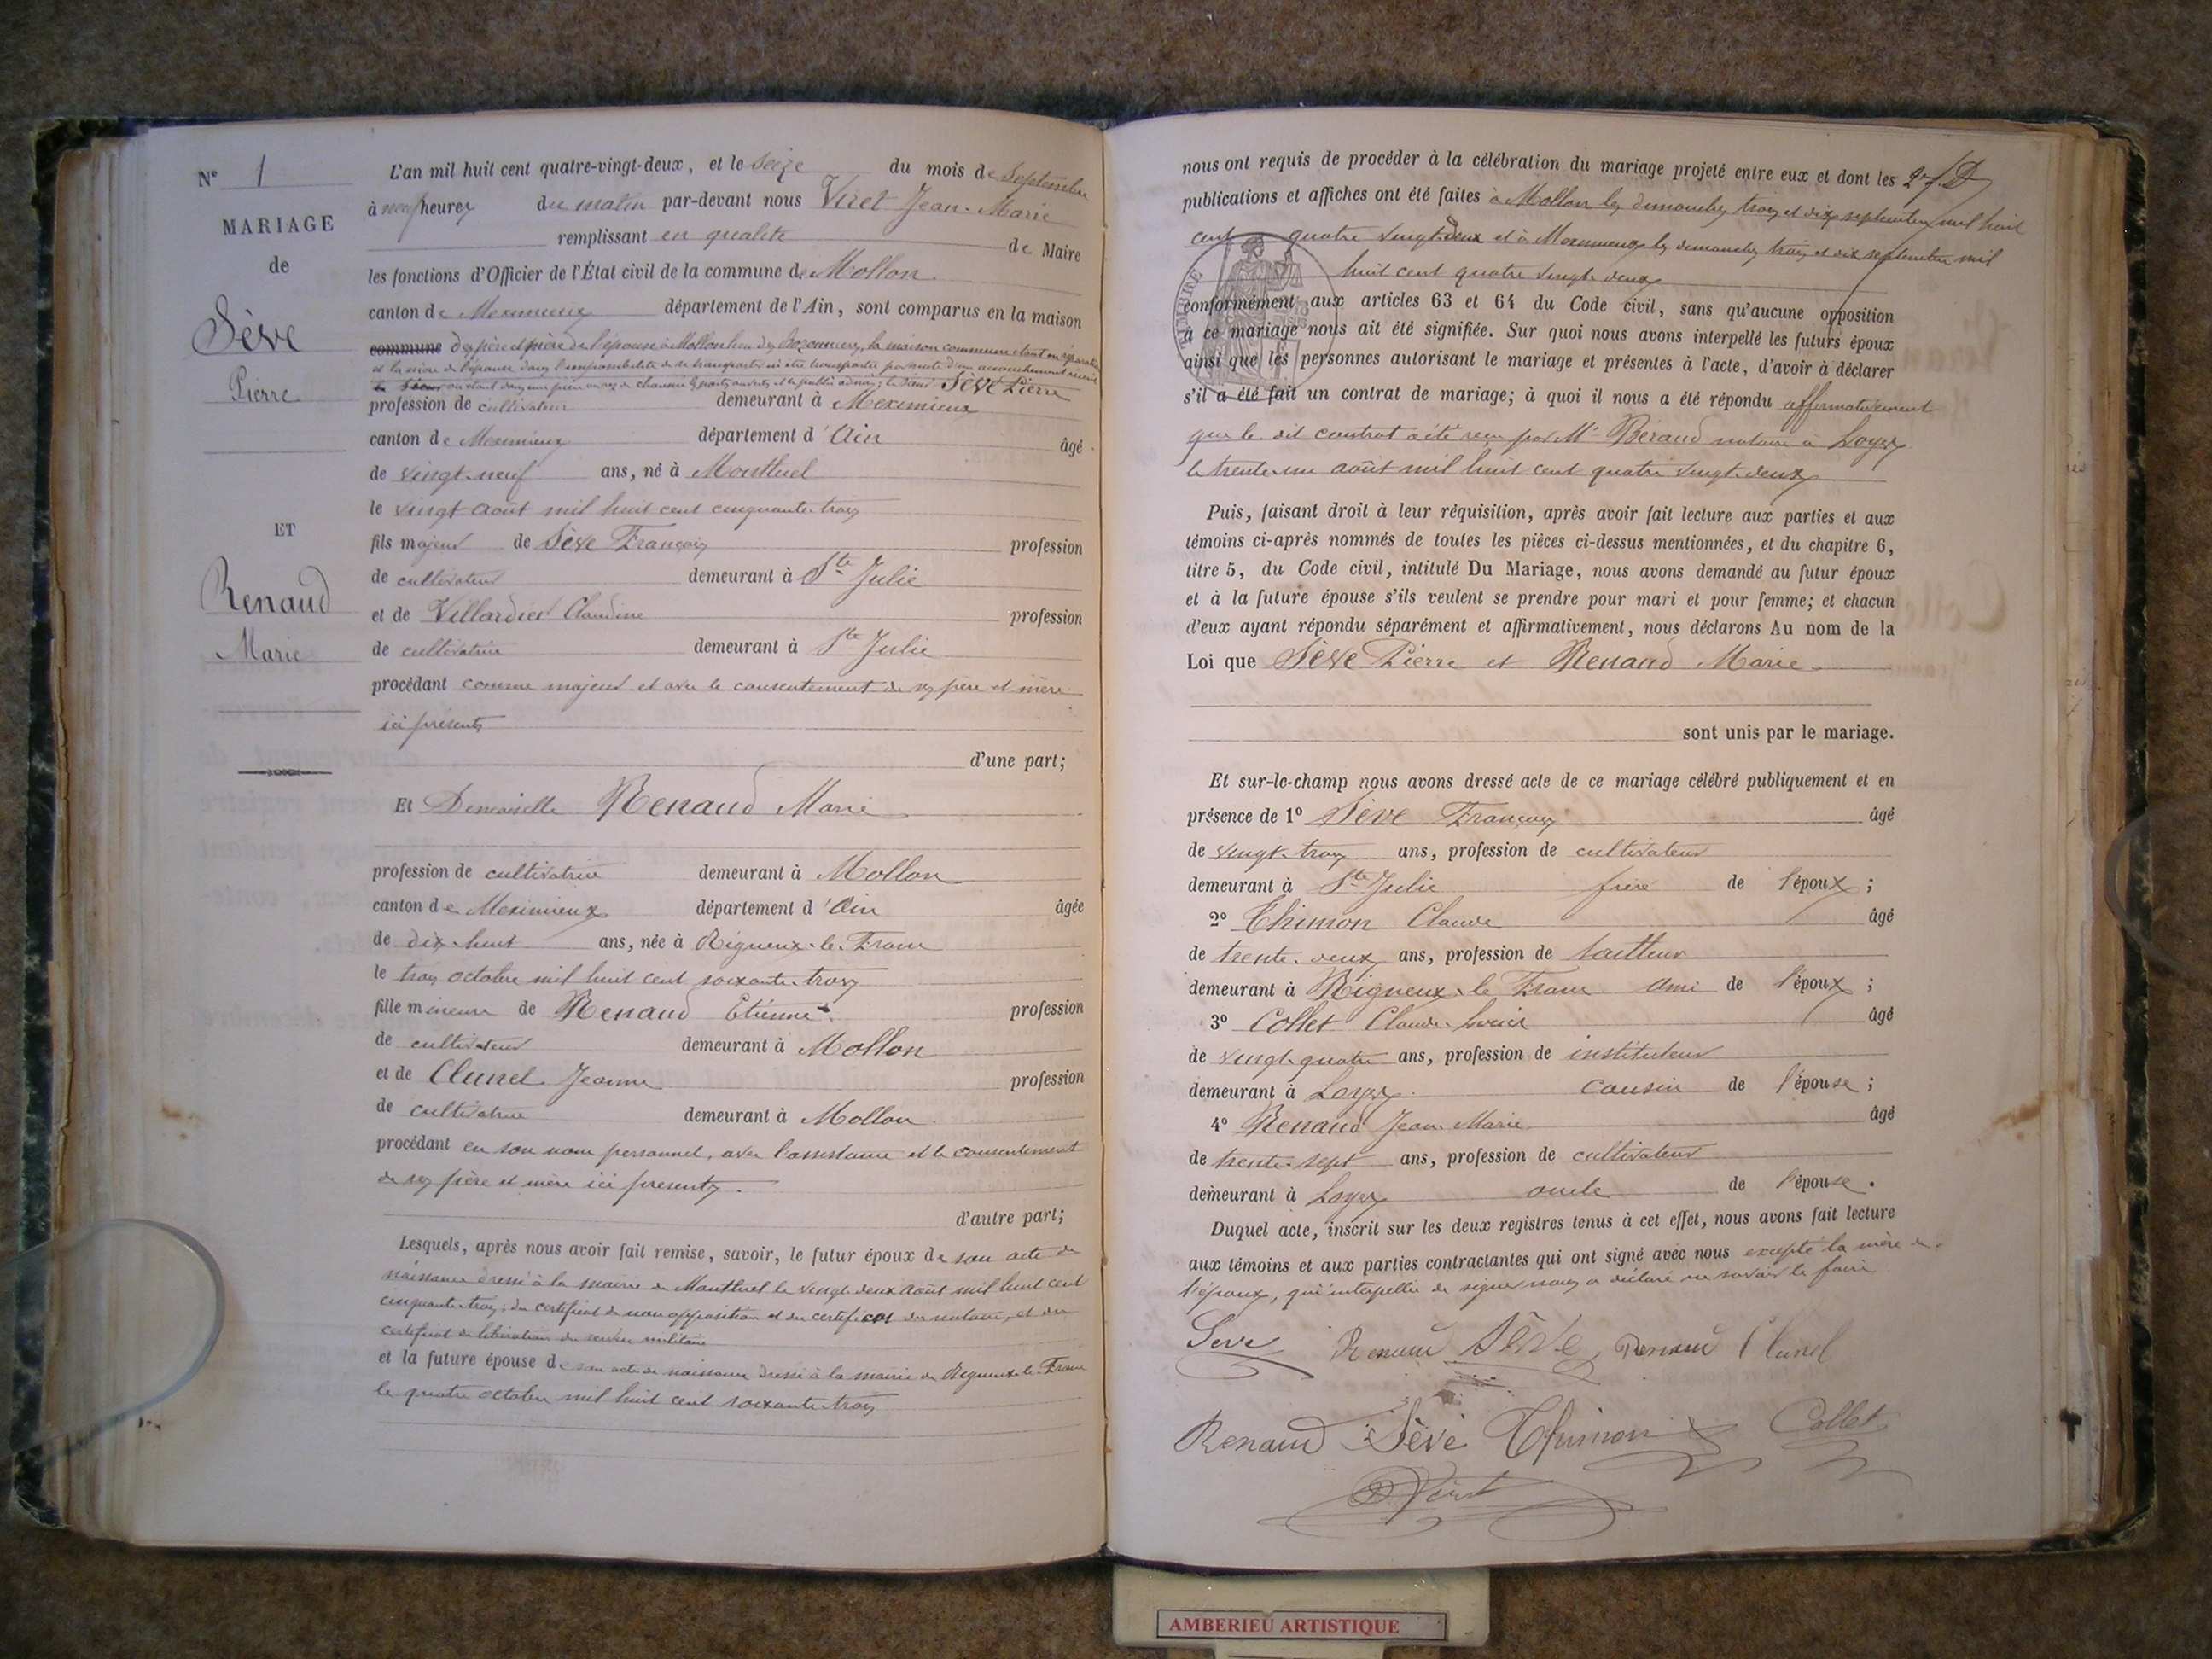 N° 1
MARIAGE
de
Sève
Pierre
ET
Renaud
Marie
L'an mil huit cent quatre-vingt-deux, et le seize du mois de Septembre
à neuf heures du matin par-devant nous Viret Jean-Marie
remplissant en qualité de Maire
les fonctions d'Officier de l'État civil de la commune de Mollon
canton de Meximieux département de l'Ain, sont comparus en la maison
commune des père et mère de l'épouse à Mollon lieu des la maison commune étant en réparation
et la mère de l'épouse dans l'impossibilité de se transporter ni être transportée par suite d'un accouchement récent
le Sieur étant dans une pièce au rez de chaussée les portes ouvertes et le public admis; le Sieur Sève Pierre
profession de cultivateur demeurant à Meximieux
canton de Meximieux département d'Ain âgé
de vingt-neuf ans, né à Montluel
le vingt août mil huit cent cinquante-trois
fils majeur de Sève François profession
de cultivateur demeurant à Ste Julie
et de Villardier Claudine profession
de cultivatrice demeurant à Ste Julie
procédant comme majeur et avec le consentement de ses père et mère
ici présents
d'une part;
Et Demoiselle Renaud Marie
profession de cultivatrice demeurant à Mollon
canton de Meximieux département d'Ain âgée
de dix-huit ans, née à Rigneux-le-Franc
le trois octobre mil huit cent soixante-trois
fille mineure de Renaud Etienne profession
de cultivateur demeurant à Mollon
et de Clunel Jeanne profession
de cultivatrice demeurant à Mollon
procédant en son nom personnel, avec l'assistance et le consentement
de ses père et mère ici présents.
d'autre part;
Lesquels, après nous avoir fait remise, savoir, le futur époux de son acte de
naissance dressé à la mairie de Montluel le vingt-deux août mil huit cent
cinquante-trois; du certificat de non opposition et du certificat du notaire, et du
certificat de libération du service militaire
et la future épouse de son acte de naissance dressé à la mairie de Rigneux-le-Franc
le quatre octobre mil huit cent soixante-trois
nous ont requis de procéder à la célébration du mariage projeté entre eux et dont les
publications et affiches ont été faites à Mollon les dimanches trois et dix septembre mil huit
cent quatre vingt-deux et à Meximieux les dimanches trois et dix septembre mil
huit cent quatre vingt-deux
conformément aux articles 63 et 64 du Code civil, sans qu'aucune opposition
à ce mariage nous ait été signifiée. Sur quoi nous avons interpellé les futurs époux
ainsi que les personnes autorisant le mariage et présentes à l'acte, d'avoir à déclarer
s'il a été fait un contrat de mariage; à quoi il nous a été répondu affirmativement
que le dit contrat a été reçu par Me Béraud notaire à Loyes
le trente-un août mil huit cent quatre vingt-deux
Puis, faisant droit à leur réquisition, après avoir fait lecture aux parties et aux
témoins ci-après nommés de toutes les pièces ci-dessus mentionnées, et du chapitre 6,
titre 5, du Code civil, intitulé Du Mariage, nous avons demandé au futur époux
et à la future épouse s'ils veulent se prendre pour mari et pour femme; et chacun
d'eux ayant répondu séparément et affirmativement, nous déclarons Au nom de la
Loi que Sève Pierre et Renaud Marie
sont unis par le mariage.
Et sur-le-champ nous avons dressé acte de ce mariage célébré publiquement et en
présence de 1° Sève François âgé
de vingt-trois ans, profession de cultivateur
demeurant à Ste Julie frère de l'époux;
2° Thimon Claude âgé
de trente-deux ans, profession de tailleur
demeurant à Rigneux-le-Franc ami de l'époux;
3° Collet Claude âgé
de vingt-quatre ans, profession de instituteur
demeurant à Loyes cousin de l'épouse;
4° Renaud Jean-Marie âgé
de trente-sept ans, profession de cultivateur
demeurant à Loyes oncle de l'épouse.
Duquel acte, inscrit sur les deux registres tenus à cet effet, nous avons fait lecture
aux témoins et aux parties contractantes qui ont signé avec nous excepté la mère de
l'époux, qui interpellée de signer nous a déclaré ne savoir le faire
Seve Renaud Sève Renaud Clunel
Renaud Sève Thimon Collet
Viret
AMBERIEU ARTISTIQUE